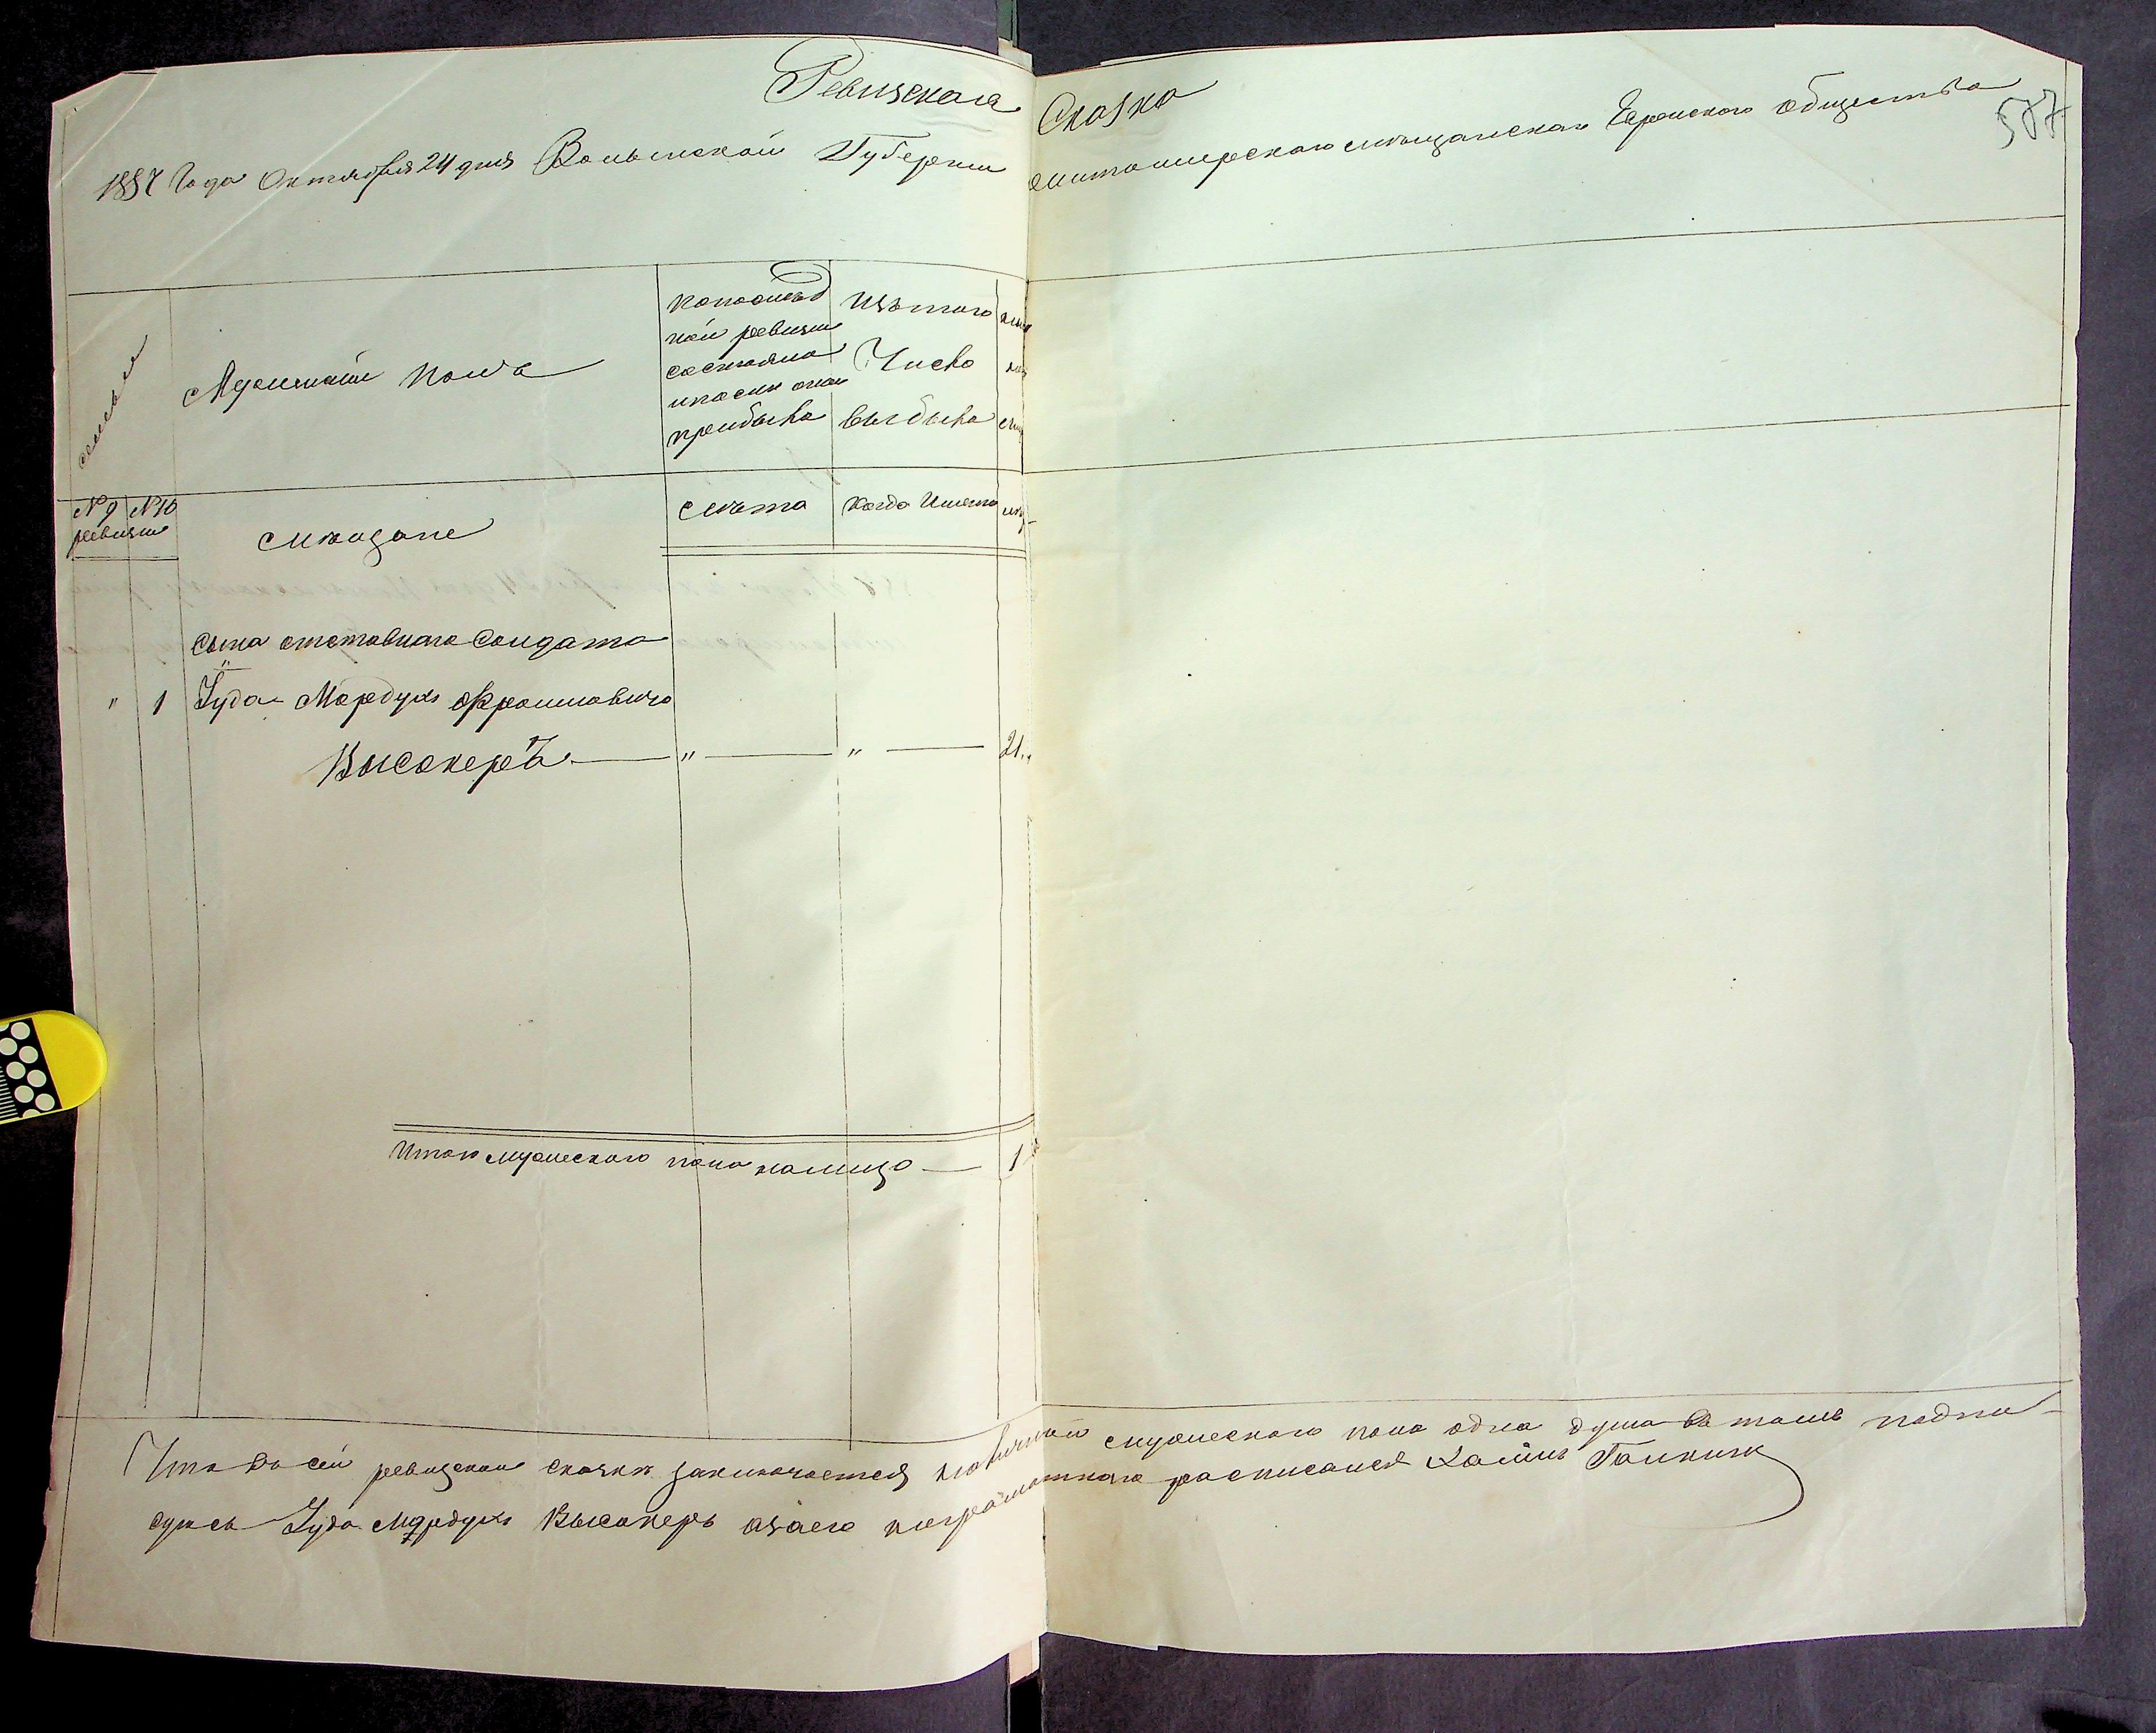 Ревизская Сказка
587
1857 Года Октября 24 дня Волынской Губернии Житомирскаго мещанскаго Еврейскаго общества
семьи
Мужескаго пола
По послед
ней ревизии
состояло
и после онои
прибыло
Изътого
Число
выбыло
№ 9 № 10
ревизии
мещане
Лета
Когда Именно
Сына отставнаго Солдата
" 1 Іуда Мордухъ Фроимовича
Высокеръ — " — " — 21
Итого мужескаго пола налицо — 1
Что во сей ревизской сказки заключается мужескаго пола одна душа въ томъ подпи-
суюсь Іуда Мордухъ Высокеръ азаего неграмотнаго росписался Хаимъ